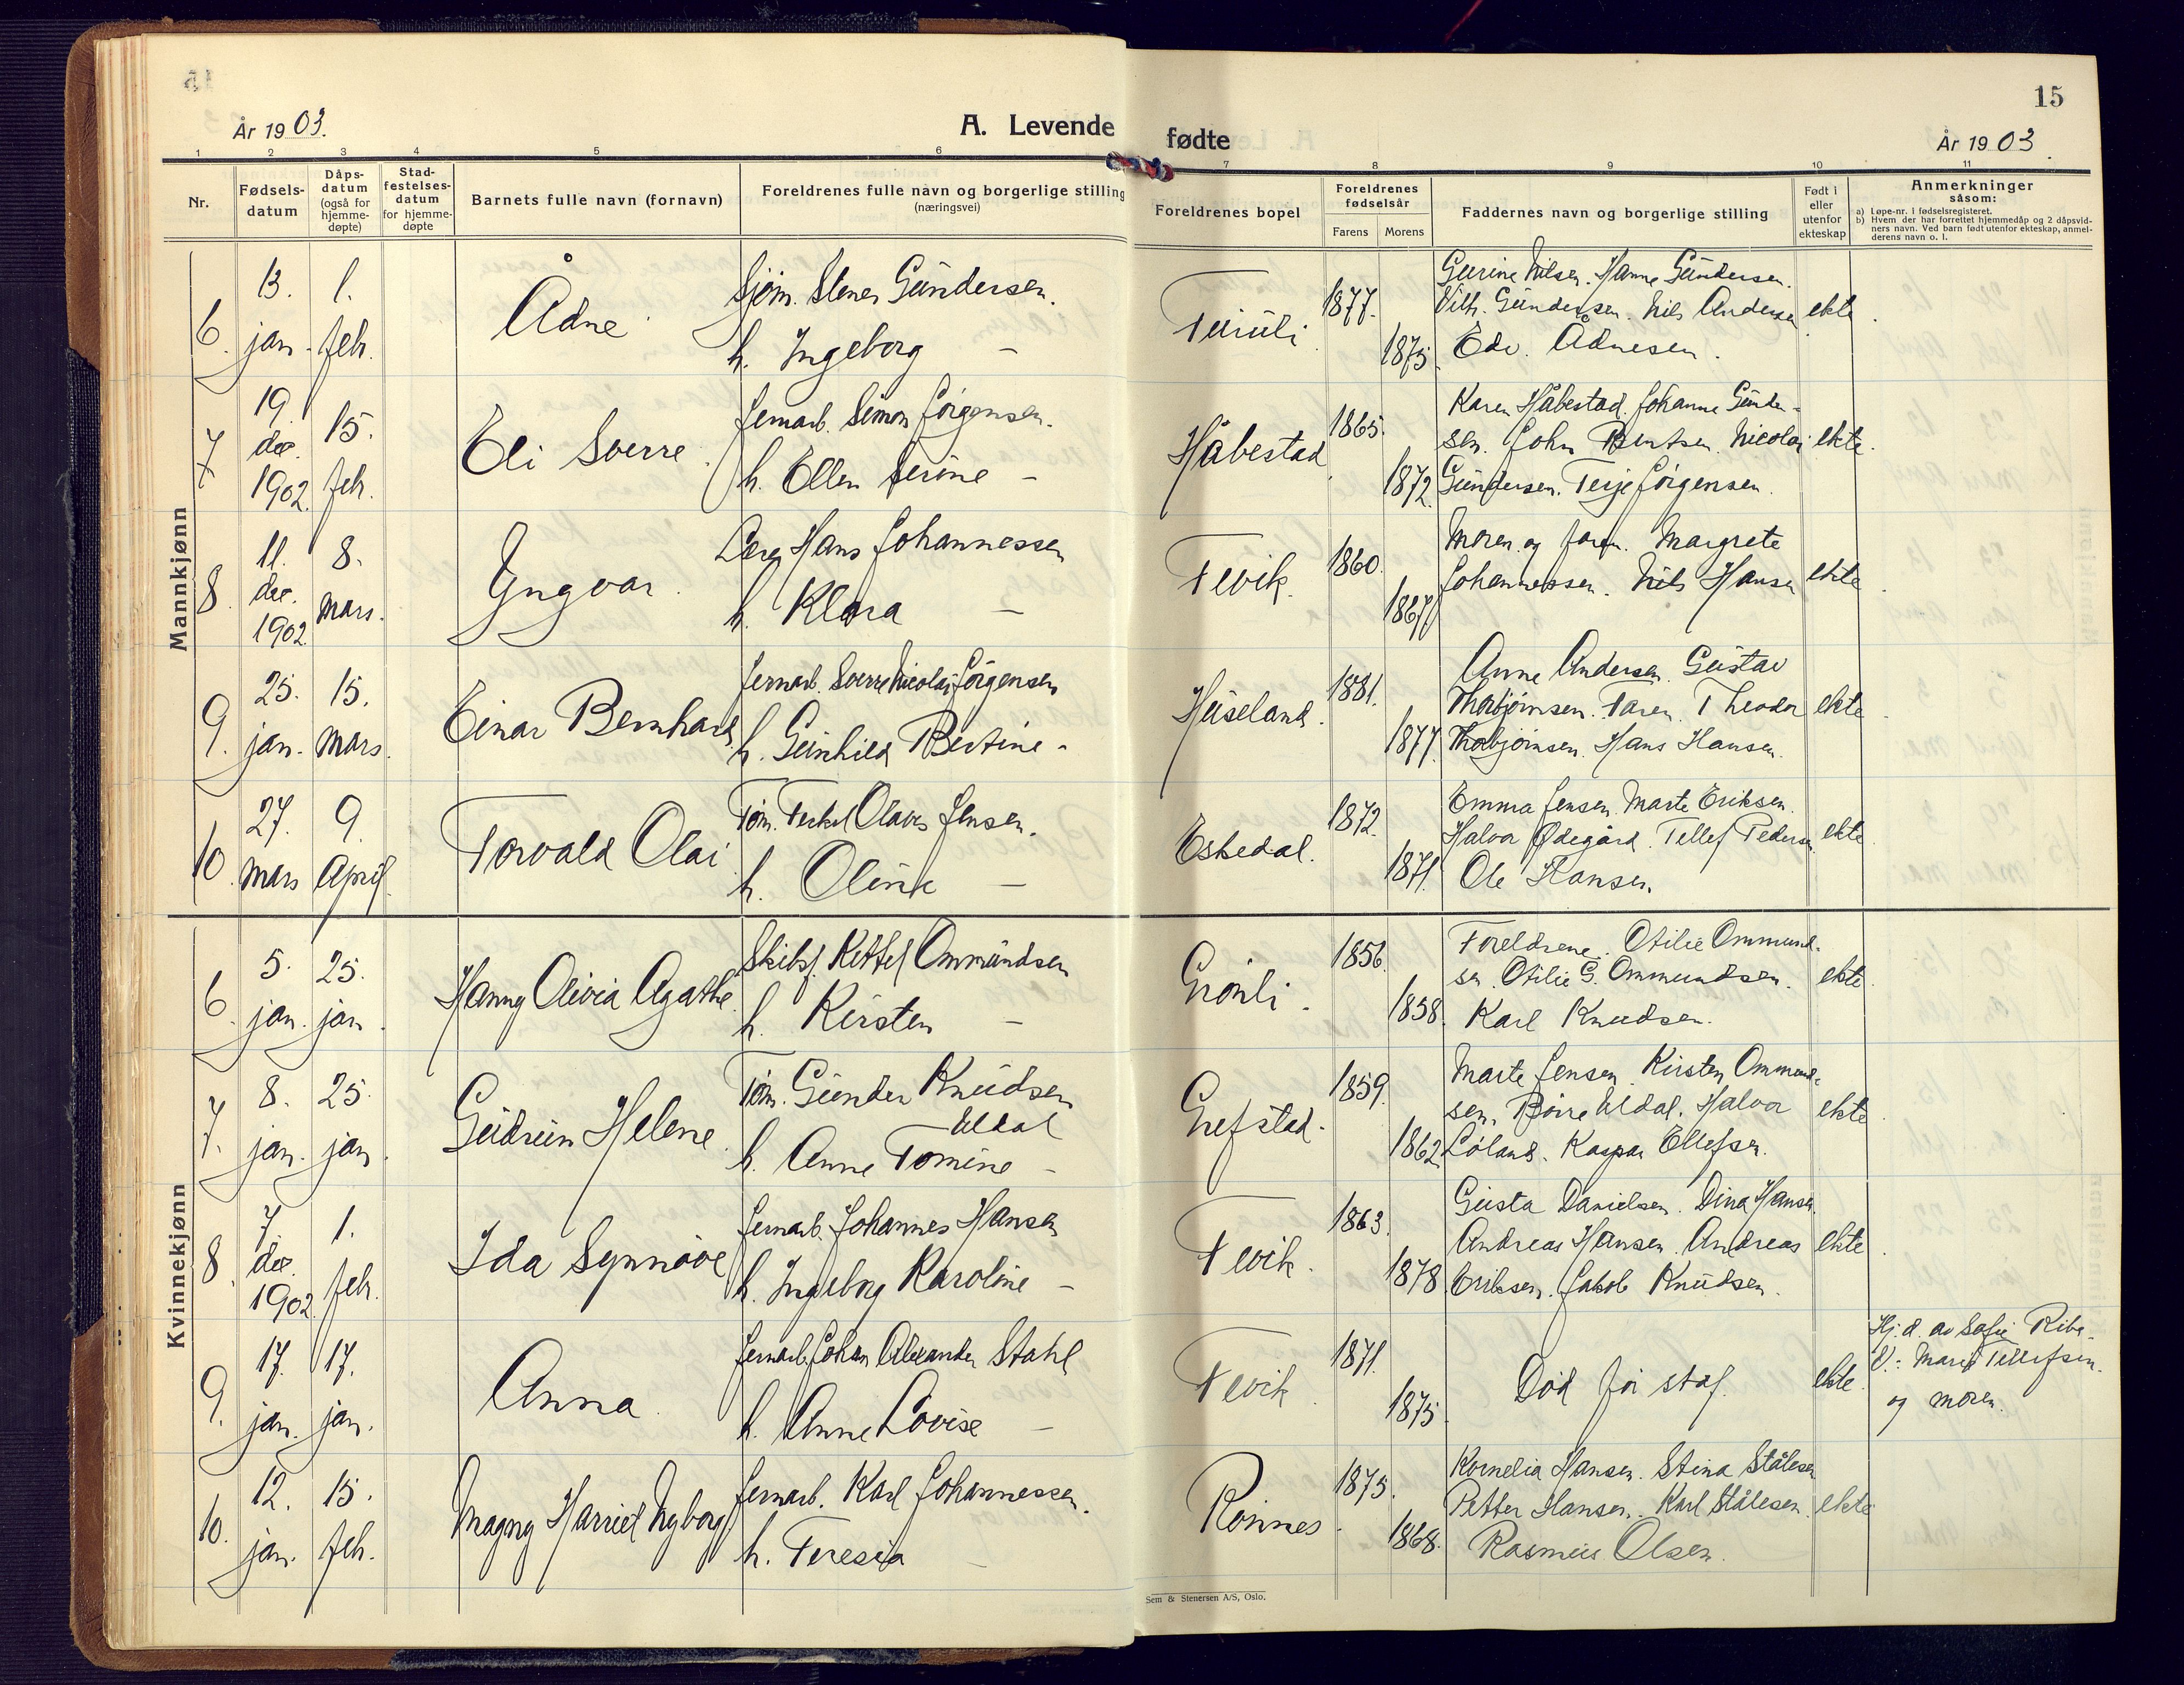 15
År 1903.
A. Levende fødte
År 1903.
1 2 3 4 5 6 7 8 9 10 11
Nr.
Fødsels-
datum
Dåps-
datum
(også for
hjemme-
døpte)
Stad-
festelses-
datum
for hjemme-
døpte
Barnets fulle navn (fornavn)
Foreldrenes fulle navn og borgerlige stilling
(næringsvei)
Foreldrenes bopel
Foreldrenes
fødselsår
Farens Morens
Faddernes navn og borgerlige stilling
Født i
eller
utenfor
ekteskap
Anmerkninger
såsom:
a) Løpe-nr. i fødselsregisteret.
b) Hvem der har forrettet hjemmedåp og 2 dåpsvid-
ners navn. Ved barn født utenfor ekteskap, anmel-
derens navn o. l.
Mannkjønn
6. 13. jan. 1. feb.
Ådne
Sjøm. Stener Gundersen.
h. Ingeborg –
Furuli
1877.
1875
Gurine Nilsen. Hanne Gundersen.
Vilh. Gundersen. Nils Andersen
Edv. Ådnesen.
ekte.
7 19. dec. 1902. 15. feb.
Eli Sverre.
Jernarb. Simon Jørgensen.
h. Ellen Serine –
Håbestad
1865.
1872
Karen Håbestad. Johanne Gunder-
sen. John Berntsen. Nicolai
Gundersen. Terje Jørgensen.
ekte.
8. 11. dec. 1902. 8. mars.
Yngvar.
Hans Johannessen
h. Klara –
Fevik.
1860.
1867
Moren og faren. Margrete
Johannessen. Nils Hansen
ekte.
9. 25. jan. 15. mars.
Einar Bernhard.
Jernarb. Sverre Nicolai Jørgensen
h. Gunhild Bertine –
Huseland.
1881.
1877.
Anne Andersen. Gustav
Thorbjørnsen. Faren. Theodor
Thorbjørnsen. Hans Hansen.
ekte.
10. 27. mars 9. April.
Torvald Olai
Tøm. Terkel Olaves Jensen.
h. Oline –
Eskedal.
1872.
1871.
Emma Jensen. Marte Eriksen.
Halvor Ødegård. Tellef Pedersen.
Ole Hansen.
ekte.
Kvinnekjønn
6. 5. jan. 25. jan.
Hanny Olivia Agathe.
Skibsf. Kittel Ommundsen
h. Kirsten –
Grønli.
1856.
1858.
Foreldrene. Otilie Ommund-
sen. Otilie G. Ommundsen.
Karl Knudsen.
ekte.
7. 8. jan. 25. jan.
Gudrun Helene.
Tøm. Gunder Knudsen
Uldal
h. Anne Tomine –
Grefstad.
1859.
1862.
Marte Jensen. Kirsten Ommund-
sen. Børre Uldal. Halvor
Løland. Kaspar Ellefsen.
ekte.
8. 7. dec. 1902. 1. feb.
Ida Synnøve
Jernarb. Johannes Hansen
h. Ingeborg Karoline –
Fevik.
1863.
1878.
Gusta Danielsen. Dina Hansen.
Andreas Hansen. Andreas
Eriksen. Jakob Knudsen.
ekte.
9. 17. jan. 17. jan.
Anna.
Jernarb. Johan Alexander Stahl
h. Anne Lovise –
Fevik.
1871.
1875.
Død før staf.
ekte.
Hj.d. av Sofie Ribe.
V.: Marie Tellefsen.
og moren.
10. 12. jan. 15. feb.
Magny Harriet Nyborg
Jernarb. Karl Johannessen.
h. Teresia –
Rønnes.
1875.
1868.
Kornelia Hansen. Stina Stålesen
Petter Hansen. Karl Stålesen.
Rasmus Olsen.
ekte
Sem & Stenersen A/S, Oslo.